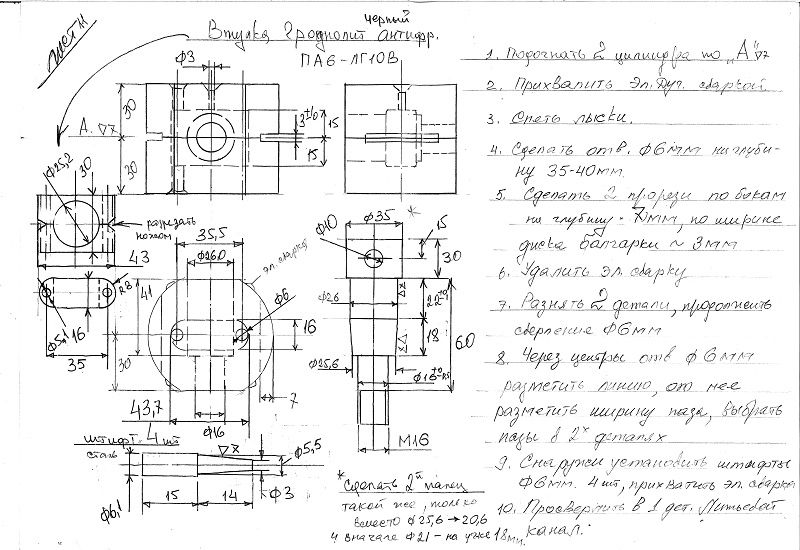 Лист №1
черный
Втулка Гроднолит антифр.
ПА6-ЛГ10В
Ф3
А. ▽7
30
30
3±0,1
15
15
Ф25,2
30
разрезать
ножом
43
R8
Ф5,1
16
35
35,5
Ф26.0
эл. сварка
41
30
Ф6
16
43,7
Ф16
7
штифт - 4 шт
сталь
▽7
Ф5,5
Ф6,1
15
14
Ф3
Ф10
Ф35
*
15
30
Ф26
18
60
Ф25,6
М16
* Сделать 2й палец
такой же, только
вместо Ф25,6 → 20,6
и вначале Ф21 - на уже 18мм.
1. Подогнать 2 цилиндра по „А" ▽7
2. Прихвалить Эл. Дуг. сваркой
3. Снеть лыски.
4. Сделать отв. Ф6мм на глуби-
ну 35-40мм.
5. Сделать 2 прорези по бокам
на глубину - 7мм, по ширине
диска балгарки ~ 3мм
6. Удалить эл. сварку
7. Разнять 2 детали, продолжить
сверление Ф6мм
8. Через центры отв Ф6мм
разметить линию, от нее
разметить ширину паза, выбрать
пазы в 2х деталях
9. Снаружи установить штифты
Ф6мм. 4 шт, прихватить эл. сварка
10. Просверлить в 1 дет. Литьевой
канал.